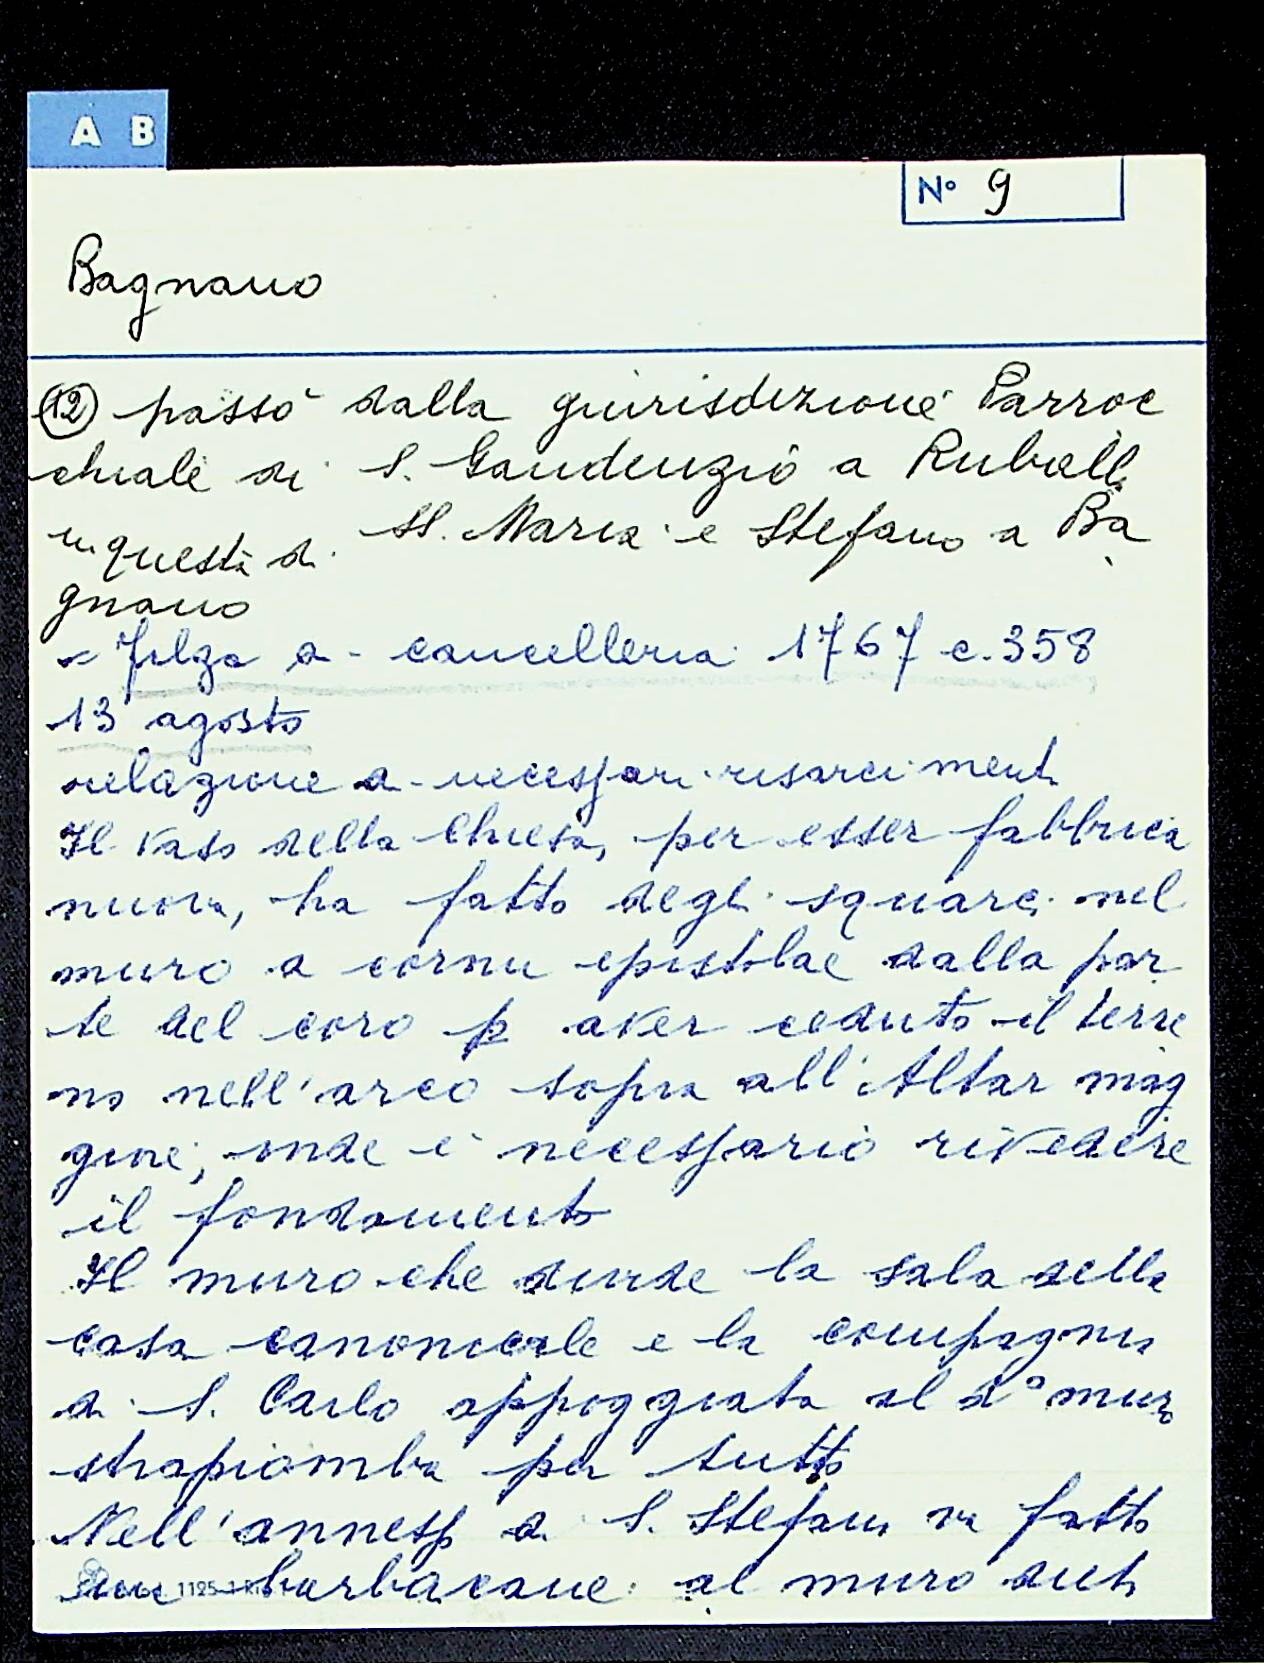 A B
N° 9
Bagnano
(12) passò dalla giurisdizione Parroc
chiale di S. Gaudenzio a Ruballa
in questa di SS. Maria e Stefano a Ba
gnano
Filza di cancelleria 1767 c. 358
13 agosto
relazione di necessari risarcimenti
Il vaso della Chiesa, per esser fabbrica
nuova, ha fatto degli squarci nel
muro a cornu epistolae dalla par
te del coro p aver ceduto il terre
no nell'arco sopra all'Altar mag
giore, onde è necessario rivedere
il fondamento
Il muro che divide la sala della
casa canonicale e la compagnia
di S. Carlo appoggiata al d° muro
strapiomba per tutto
Nell'annesso di S. Stefano va fatto
un barbacane al muro